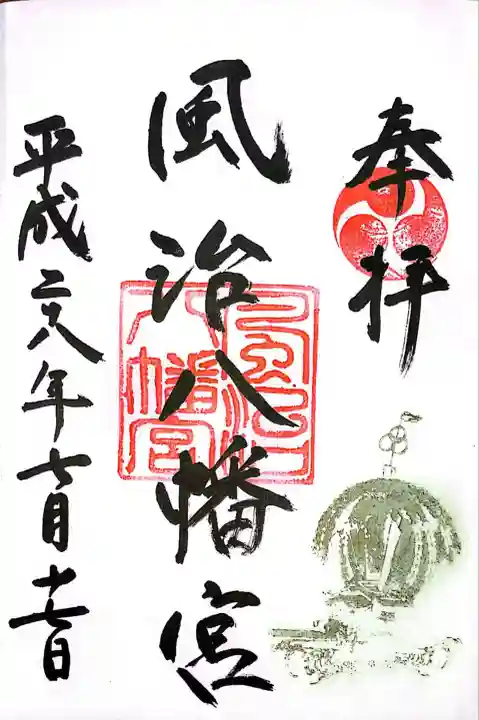 奉拝
風治八幡宮
平成二八年七月十七日
風治八幡宮